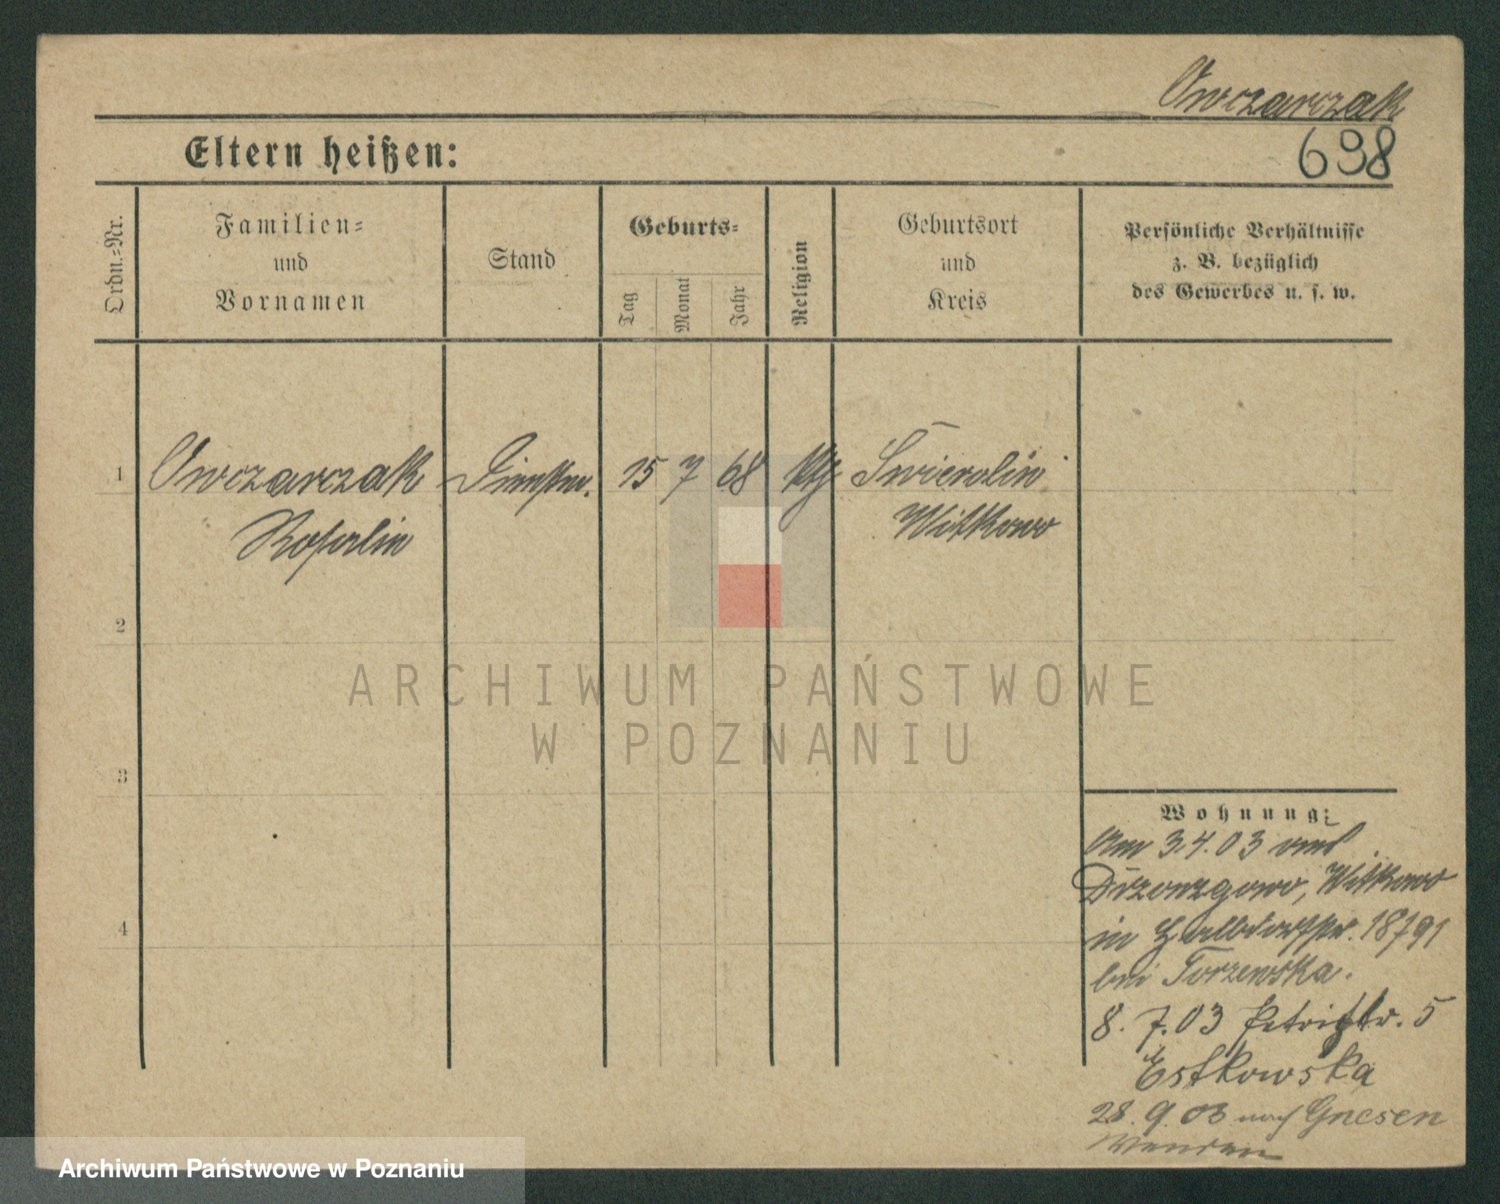 Owczarczak
Eltern heißen:
698
Ordn.-Nr.
Familien-
und
Vornamen
Stand
Geburts-
Tag
Monat
Jahr
Religion
Geburtsort
und
Kreis
Persönliche Verhältnisse
z. B. bezüglich
des Gewerbes u. s. w.
1
Owczarczak
Dienstm.
15 7 68
kth
Rosalie
Witkowo
2
ARCHIWUM PAŃSTWOWE
W POZNANIU
3
Wohnung:
Am 3.4.03 aus
Witkowo
4
in Halbdorfstr. 18/91
bei Torzewska.
8. 7. 03 Petristr. 5
Estkowska
28. 9. 03 nach Gnesen
Archiwum Państwowe w Poznaniu